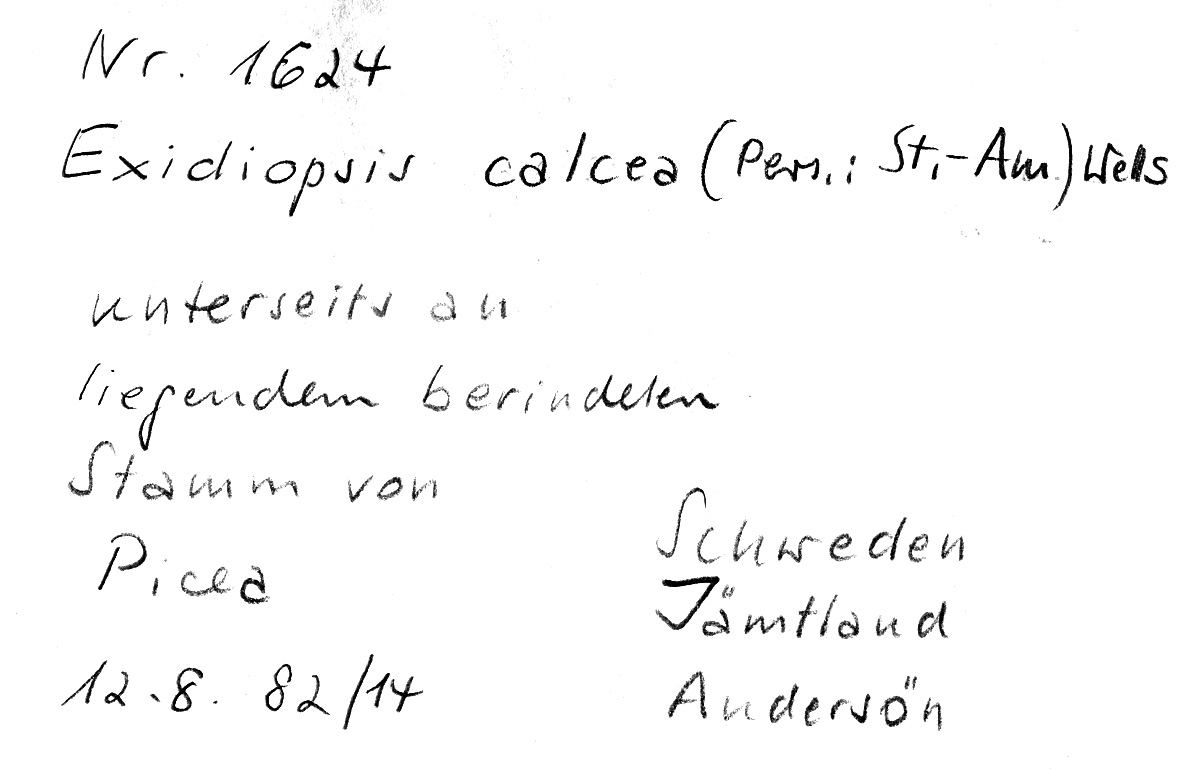 Nr. 1624
Exidiopsis calcea (Pers.: St.-Am.) Wells
unterseits an
liegendem berindeten
Stamm von
Picea
12.8. 82/14
Schweden
Jämtland
Andersön